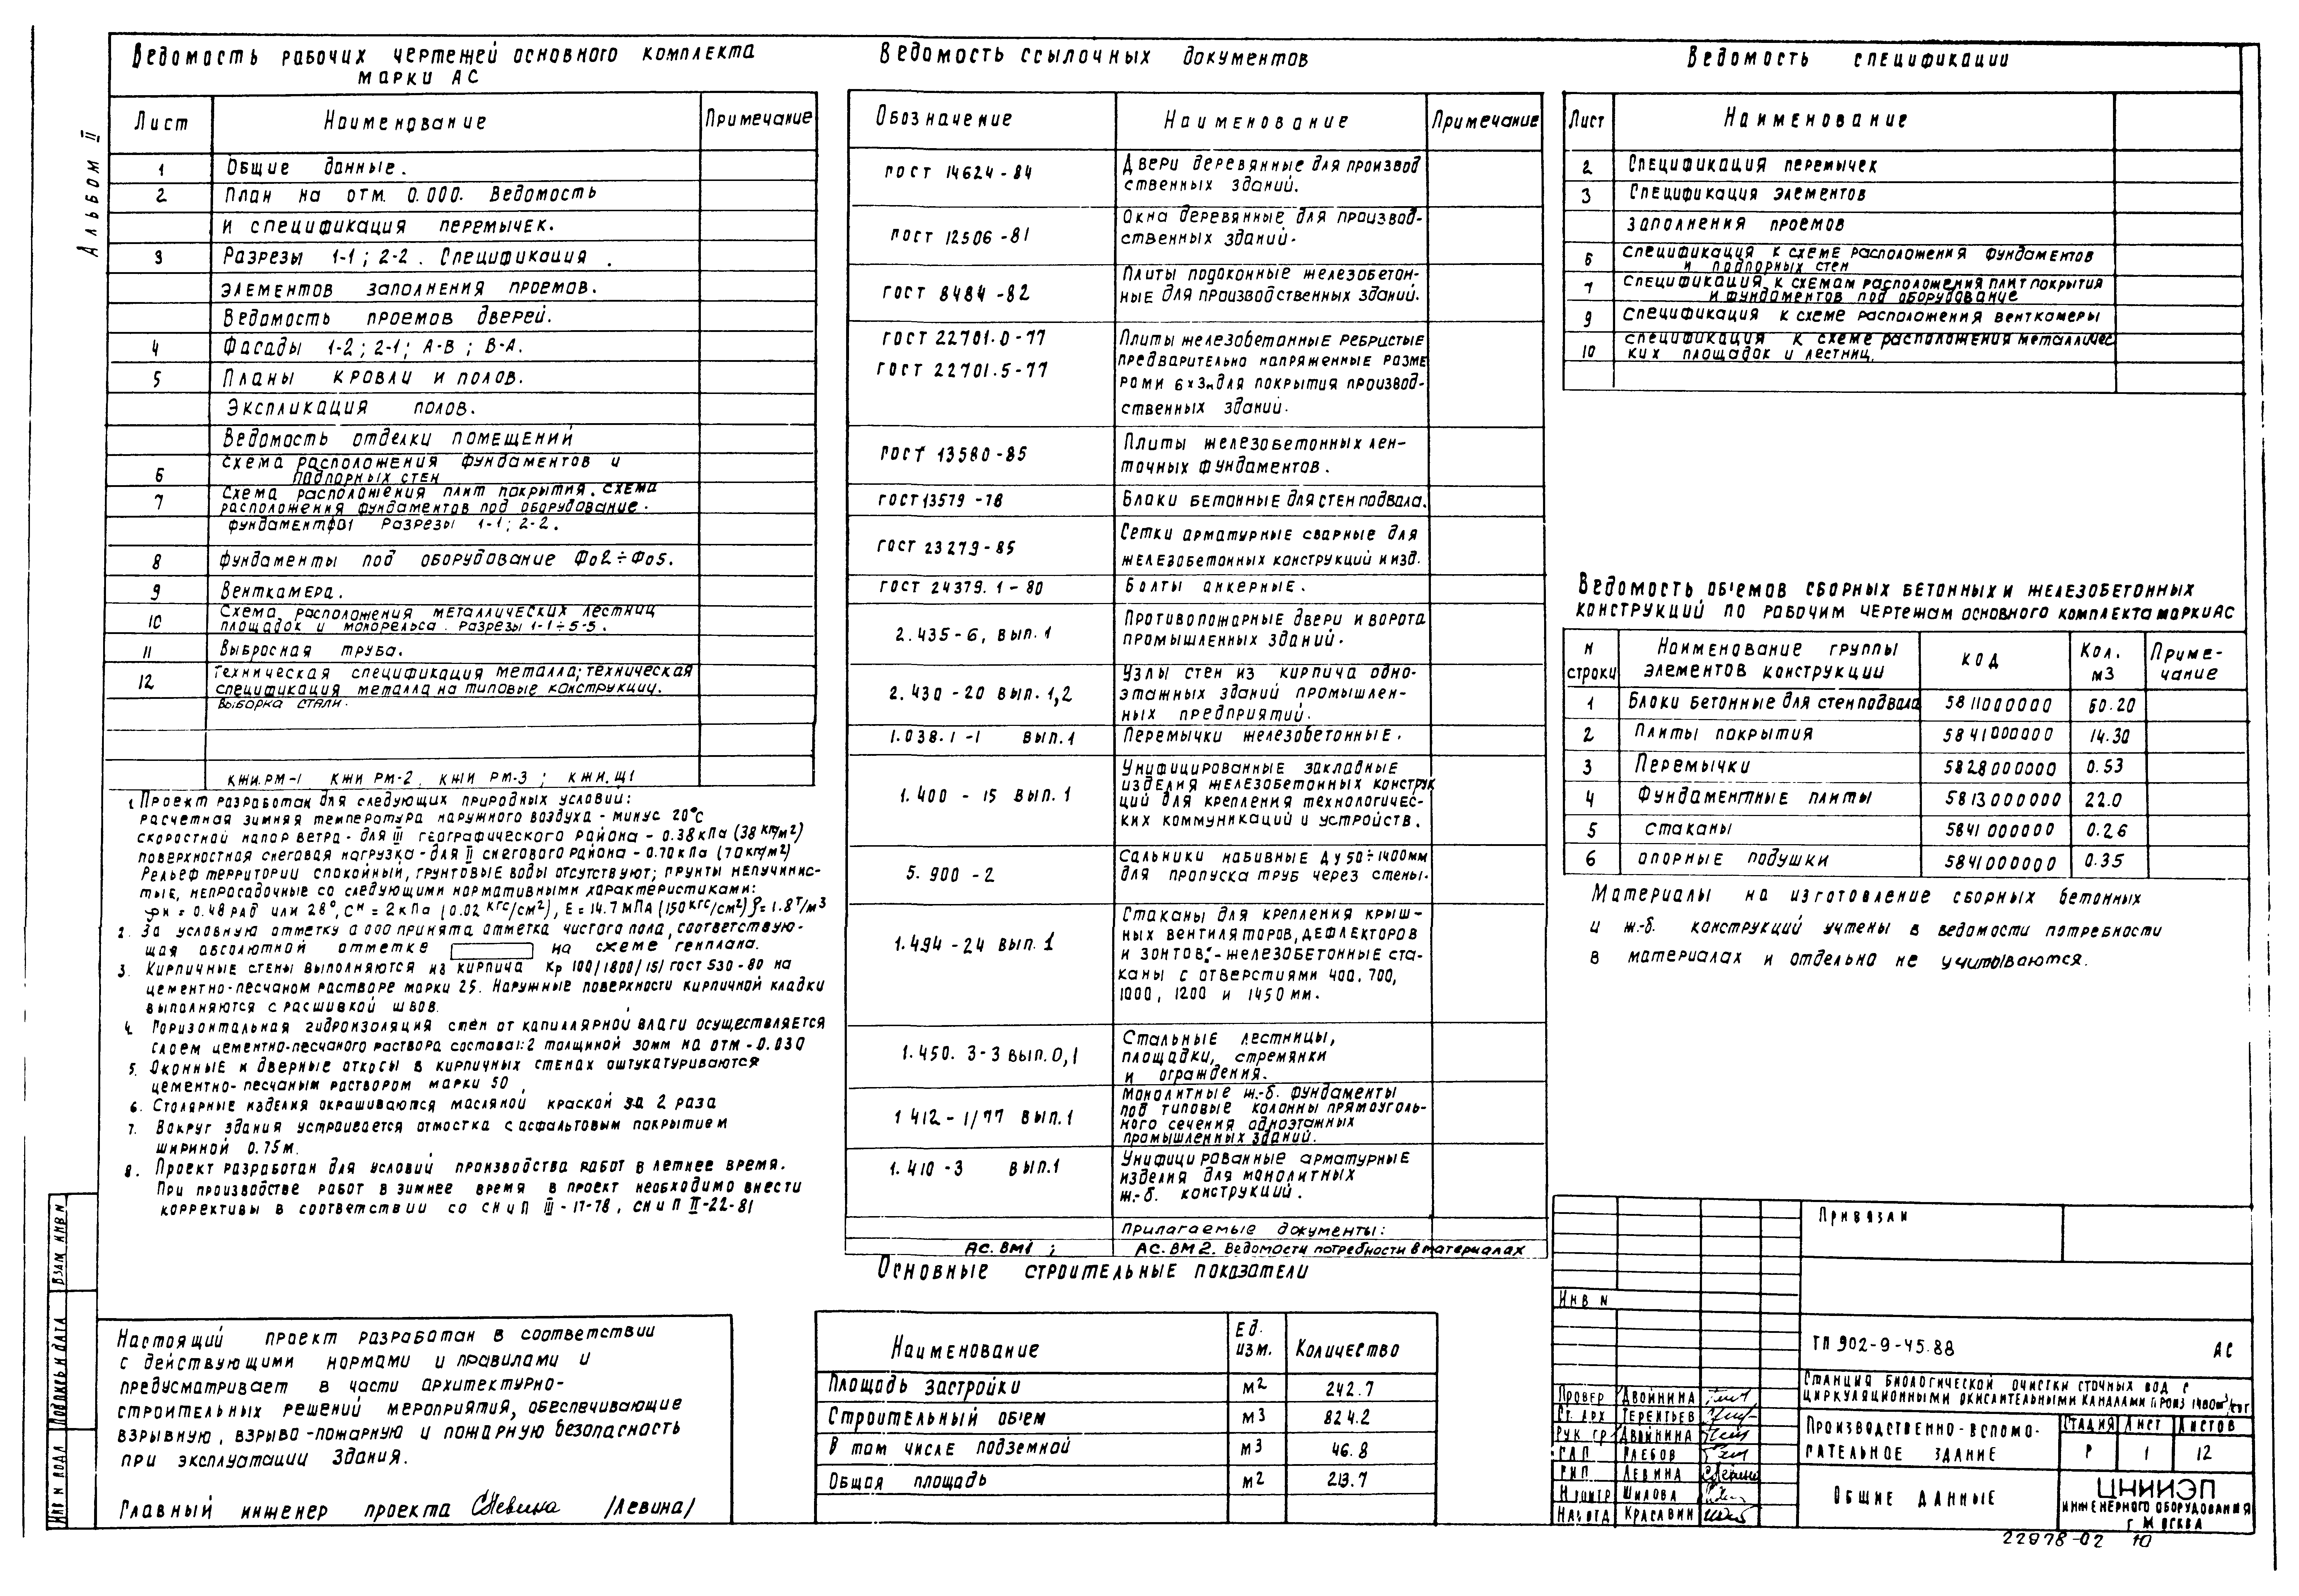 Альбом II
Ведомость рабочих чертежей основного комплекта
марки АС
Лист Наименование Примечание
1 Общие данные.
2 План на отм. 0.000. Ведомость
и спецификация перемычек.
3 Разрезы 1-1; 2-2. Спецификация
элементов заполнения проемов.
Ведомость проемов дверей.
4 Фасады 1-2; 2-1; А-В; В-А.
5 Планы кровли и полов.
Экспликация полов.
Ведомость отделки помещений
6 Схема расположения фундаментов и
подпорных стен
7 Схема расположения плит покрытия. Схема
расположения фундаментов под оборудование.
Фундамент Фо1 Разрезы 1-1; 2-2.
8 Фундаменты под оборудование Фо2÷Фо5.
9 Венткамера.
10 Схема расположения металлических лестниц
площадок и монорельса. Разрезы 1-1÷5-5.
11 Выбросная труба.
12 Техническая спецификация металла; техническая
спецификация металла на типовые конструкции.
Выборка стали.
КЖИ.РМ-1 КЖИ РМ-2. КЖИ РМ-3; КЖИ.Щ1
1. Проект разработан для следующих природных условий:
расчетная зимняя температура наружного воздуха - минус 20°С
скоростной напор ветра - для III географического района - 0.38 кПа (38 кг/м²)
поверхностная снеговая нагрузка - для II снегового района - 0.70 кПа (70 кг/м²)
Рельеф территории спокойный, грунтовые воды отсутствуют; грунты непучинис-
тые, непросадочные со следующими нормативными характеристиками:
φн = 0.48 рад или 28°, Сн = 2 кПа (0.02 кгс/см²), Е = 14.7 МПа (150 кгс/см²) ρ = 1.8 т/м³
2. За условную отметку 0.000 принята отметка чистого пола, соответствую-
щая абсолютной отметке на схеме генплана.
3. Кирпичные стены выполняются из кирпича Кр 100/1800/15/ ГОСТ 530-80 на
цементно-песчаном растворе марки 25. Наружные поверхности кирпичной кладки
выполняются с расшивкой швов.
4. Горизонтальная гидроизоляция стен от капиллярной влаги осуществляется
слоем цементно-песчаного раствора состава 1:2 толщиной 30мм на отм -0.030
5. Оконные и дверные откосы в кирпичных стенах оштукатуриваются
цементно-песчаным раствором марки 50
6. Столярные изделия окрашиваются масляной краской за 2 раза
7. Вокруг здания устраивается отмостка с асфальтовым покрытием
шириной 0.75 м.
8. Проект разработан для условий производства работ в летнее время.
При производстве работ в зимнее время в проект необходимо внести
коррективы в соответствии со СНиП III-17-78, СНиП II-22-81
Настоящий проект разработан в соответствии
с действующими нормами и правилами и
предусматривает в части архитектурно-
строительных решений мероприятия, обеспечивающие
взрывную, взрыво-пожарную и пожарную безопасность
при эксплуатации здания.
Главный инженер проекта /Левина/
Ведомость ссылочных документов
Обозначение Наименование Примечание
ГОСТ 14624-84 Двери деревянные для производ
ственных зданий.
ГОСТ 12506-81 Окна деревянные для производ-
ственных зданий.
ГОСТ 8484-82 Плиты подоконные железобетон-
ные для производственных зданий.
ГОСТ 22701.0-77 Плиты железобетонные ребристые
ГОСТ 22701.5-77 предварительно напряженные разме
рами 6×3м для покрытия производ-
ственных зданий.
ГОСТ 13580-85 Плиты железобетонных лен-
точных фундаментов.
ГОСТ 13579-78 Блоки бетонные для стен подвала.
ГОСТ 23279-85 Сетки арматурные сварные для
железобетонных конструкций и изд.
ГОСТ 24379.1-80 Болты анкерные.
2.435-6, вып.1 Противопожарные двери и ворота
промышленных зданий.
2.430-20 вып.1,2 Узлы стен из кирпича одно-
этажных зданий промышлен-
ных предприятий.
1.038.1-1 вып.1 Перемычки железобетонные.
1.400-15 вып.1 Унифицированные закладные
изделия железобетонных конструк
ций для крепления технологичес-
ких коммуникаций и устройств.
5.900-2 Сальники набивные Ду 50÷1400мм
для пропуска труб через стены.
1.494-24 вып.1 Стаканы для крепления крыш-
ных вентиляторов, дефлекторов
и зонтов: - железобетонные ста-
каны с отверстиями 400, 700,
1000, 1200 и 1450 мм.
1.450.3-3 вып.0,1 Стальные лестницы,
площадки, стремянки
и ограждения.
1 412-1/77 вып.1 Монолитные ж.-б. фундаменты
под типовые колонны прямоуголь-
ного сечения одноэтажных
промышленных зданий.
1.410-3 вып.1 Унифицированные арматурные
изделия для монолитных
ж.-б. конструкций.
Прилагаемые документы:
АС.ВМ1; АС.ВМ2. Ведомости потребности в материалах
Основные строительные показатели
Наименование Ед. изм. Количество
Площадь застройки м2 242.7
Строительный объем м3 824.2
В том числе подземной м3 46.8
Общая площадь м2 213.7
Ведомость спецификации
Лист Наименование
2 Спецификация перемычек
3 Спецификация элементов
заполнения проемов
6 Спецификация к схеме расположения фундаментов
и подпорных стен
7 Спецификация к схемам расположения плит покрытия
и фундаментов под оборудование
9 Спецификация к схеме расположения венткамеры
10 Спецификация к схеме расположения металличес
ких площадок и лестниц.
Ведомость объемов сборных бетонных и железобетонных
конструкций по рабочим чертежам основного комплекта марки АС
N строки Наименование группы элементов конструкции Код Кол. м3 Приме-чание
1 Блоки бетонные для стен подвала 5811000000 60.20
2 Плиты покрытия 5841000000 14.30
3 Перемычки 5828000000 0.53
4 Фундаментные плиты 5813000000 22.0
5 Стаканы 5841000000 0.26
6 Опорные подушки 5841000000 0.35
Материалы на изготовление сборных бетонных
и ж.-б. конструкций учтены в ведомости потребности
в материалах и отдельно не учитываются.
Привязан
Инв N
ТП 902-9-45.88 АС
Станция биологической очистки сточных вод с
циркуляционными окислительными каналами произ 1400м³/сут
Провер Двойнина
Ст. арх Терентьев
Рук гр Двойнина
ГАП Глебов
ГИП Левина
Н контр Шилова
Нач отд Красавин
Производственно-вспомо-
гательное здание
Стадия Лист Листов
Р 1 12
Общие данные
ЦНИИЭП
инженерного оборудования
г Москва
22978-02 10
Взам инв N
Подпись и дата
Инв N подл